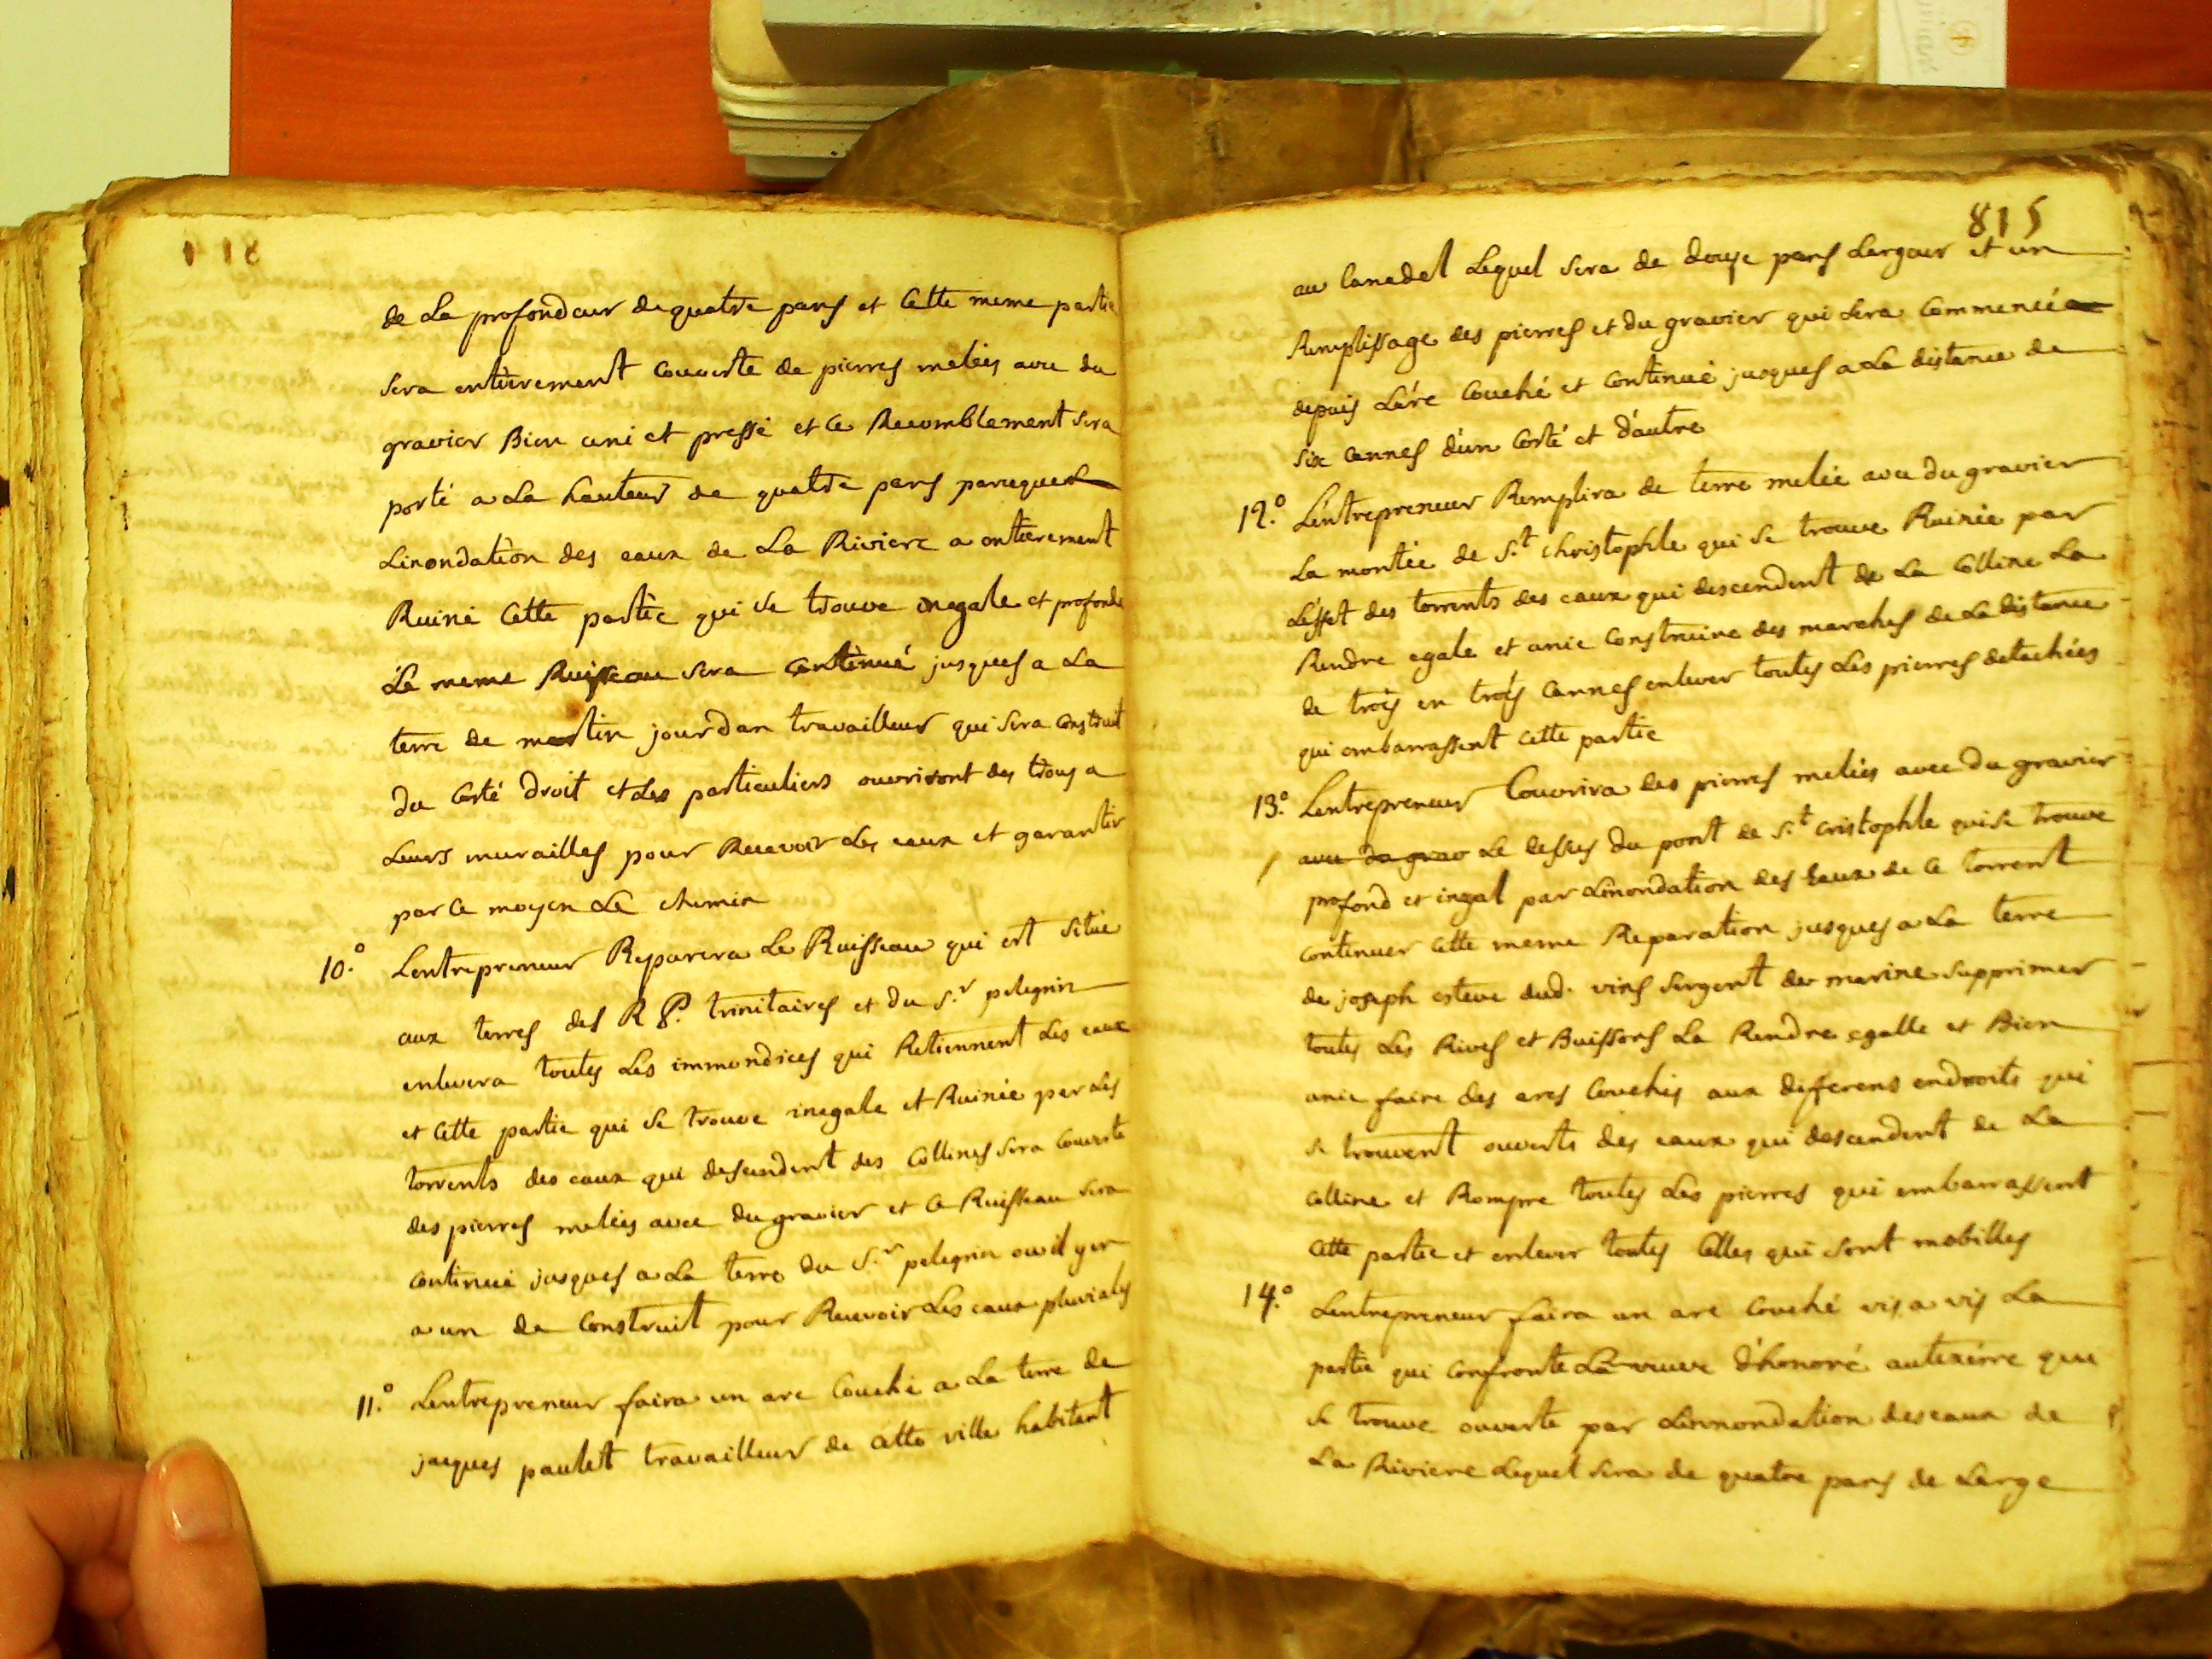 de La profondeur de quatre pans et Cette meme partie
sera entierement couverte de pierres melées avec du
gravier Bien uni et pressé et Ce Recomblement sera
porté a La hauteur de quatre pans parceque
Linondation des eaux de La Riviere a entierement
Ruiné Cette partie qui se trouve inegale et profonde
Le meme Ruisseau sera Continué jusques a La
terre de martin jourdan travailleur qui sera construit
du Costé droit et Les particuliers ouvriront des trous a
Leurs murailles pour Recevoir Les eaux et garantir
par Ce moyen Le chemin
10.° Lentrepreneur Reparera Le Ruisseau qui est situé
aux terres des R P. trinitaires et du S.r pelegrin
enlevera toutes Les immondices qui Retiennent Les eaux
et Cette partie qui se trouve inegale et Ruinée par Les
torrents des eaux qui dessendent des Collines sera Couverte
des pierres melées avec du gravier et Ce Ruisseau sera
continué jusques a La terre du S.r pelegrin ou il y en
a un de Construit pour Recevoir Les eaux pluviales
11.° Lentrepreneur faira un arc Couché a La terre de
jacques paulet travailleur de Cette ville habitant
815
au Canadel Lequel sera de douze pans Largeur et un
Remplissage des pierres et du gravier qui sera Commencé
depuis L'arc Couché et Continué jusques a La distance de
six cannes d'un Costé et d'autre
12.° L'entrepreneur Remplira de terre melée avec du gravier
La montée de S.t christophle qui se trouve Ruinée par
L'effet des torrents des eaux qui descendent de La Colline La
Rendre egale et unie Construire des marches de La distance
de trois en trois Cannes enlever toutes Les pierres detachées
qui embarrassent Cette partie
13.° Lentrepreneur Couvrira des pierres melées avec du gravier
avec du grav Le dessus du pont de S.t cristophle qui se trouve
profond et inegal par Linondation des Eaux de Ce torrent
continuer Cette meme Reparation jusques a La terre
de joseph esteve dud. vins sergent de marine supprimer
toutes Les Rives et Buissons La Rendre egalle et Bien
unie faire des arcs Couchés aux differens endroits qui
se trouvent ouverts des eaux qui descendent de La
colline et Rompre toutes Les pierres qui embarrassent
Cette partie et enlever toutes Celles qui sont mobilles
14.° Lentrepreneur faira un arc Couché vis a vis La
partie qui Confronte La veuve d'honoré qui
se trouve ouverte par Linnondation des eaux de
La Riviere Lequel sera de quatre pans de Large